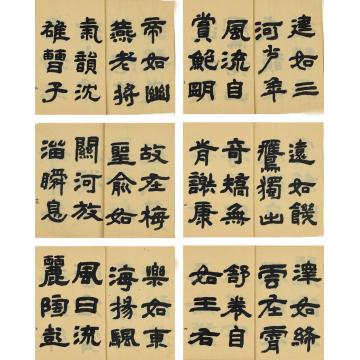 帝如幽
燕老將
氣韻沈
雄曹子
建如三
河少年
風流自
賞鮑明
故在梅
聖俞如
關河放
溜瞬息
遠如饑
鷹獨出
奇矯無
前謝康
樂如東
海揚颿
風日流
麗陶彭
澤如絳
雲在霄
舒卷自
如王右